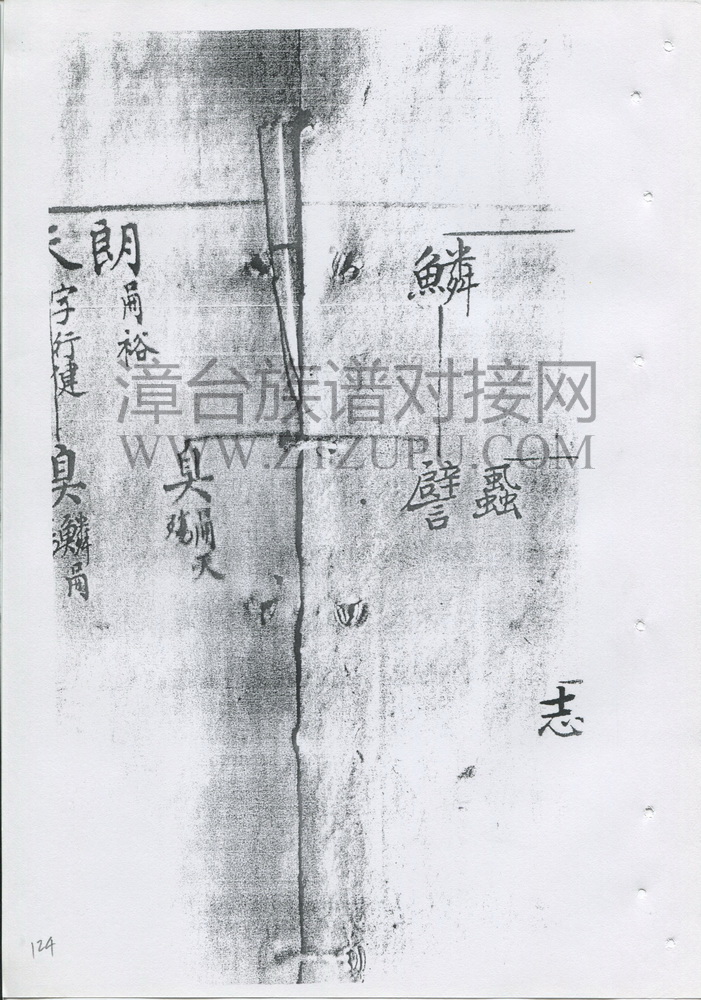 鱗
譬
蟲
志
朗
甬裕
天
字行健
臭
甬天
臭
鱗甬
漳台族谱对接网
WWW.ZTZUPU.COM
124